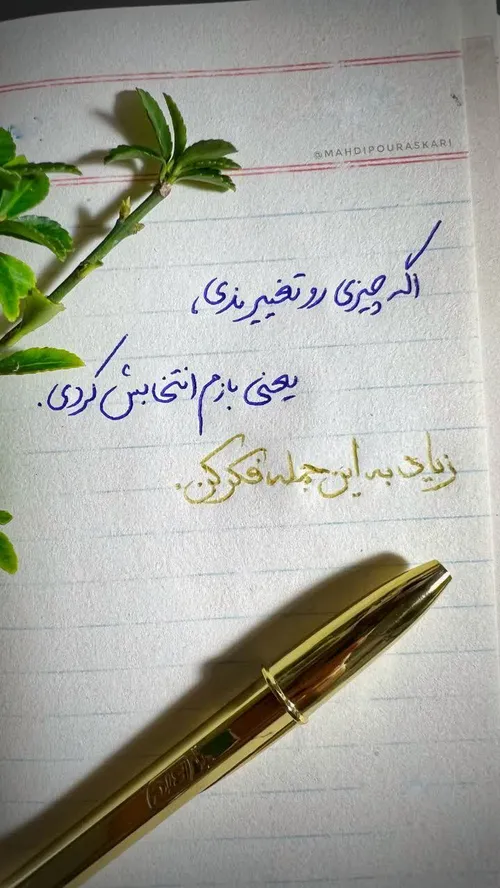 @MAHDIPOURASKARI
اگه چیزی رو تغییر ندی،
یعنی بازم انتخابش کردی.
زیاد به این جمله فکر کن.
BIC